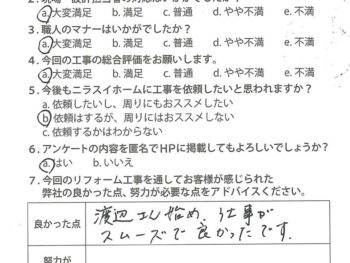 a.大変満足 b.満足 c.普通 d.やや不満 e.不満
3.職人のマナーはいかがでしたか？
a.大変満足 b.満足 c.普通 d.やや不満 e.不満
4.今回の工事の総合評価をお願いします。
a.大変満足 b.満足 c.普通 d.やや不満 e.不満
5.今後もニラスイホームに工事を依頼したいと思われますか？
a.依頼したいし、周りにもおススメしたい
b.依頼はするが、周りにはおススメしない
c.依頼するかはわからない
6.アンケートの内容を匿名でHPに掲載してもよろしいでしょうか？
a.はい b.いいえ
7.今回のリフォーム工事を通してお客様が感じられた
弊社の良かった点、努力が必要な点をアドバイスください。
良かった点
渡辺さん始め、仕事が
スムーズで良かったです。
努力が